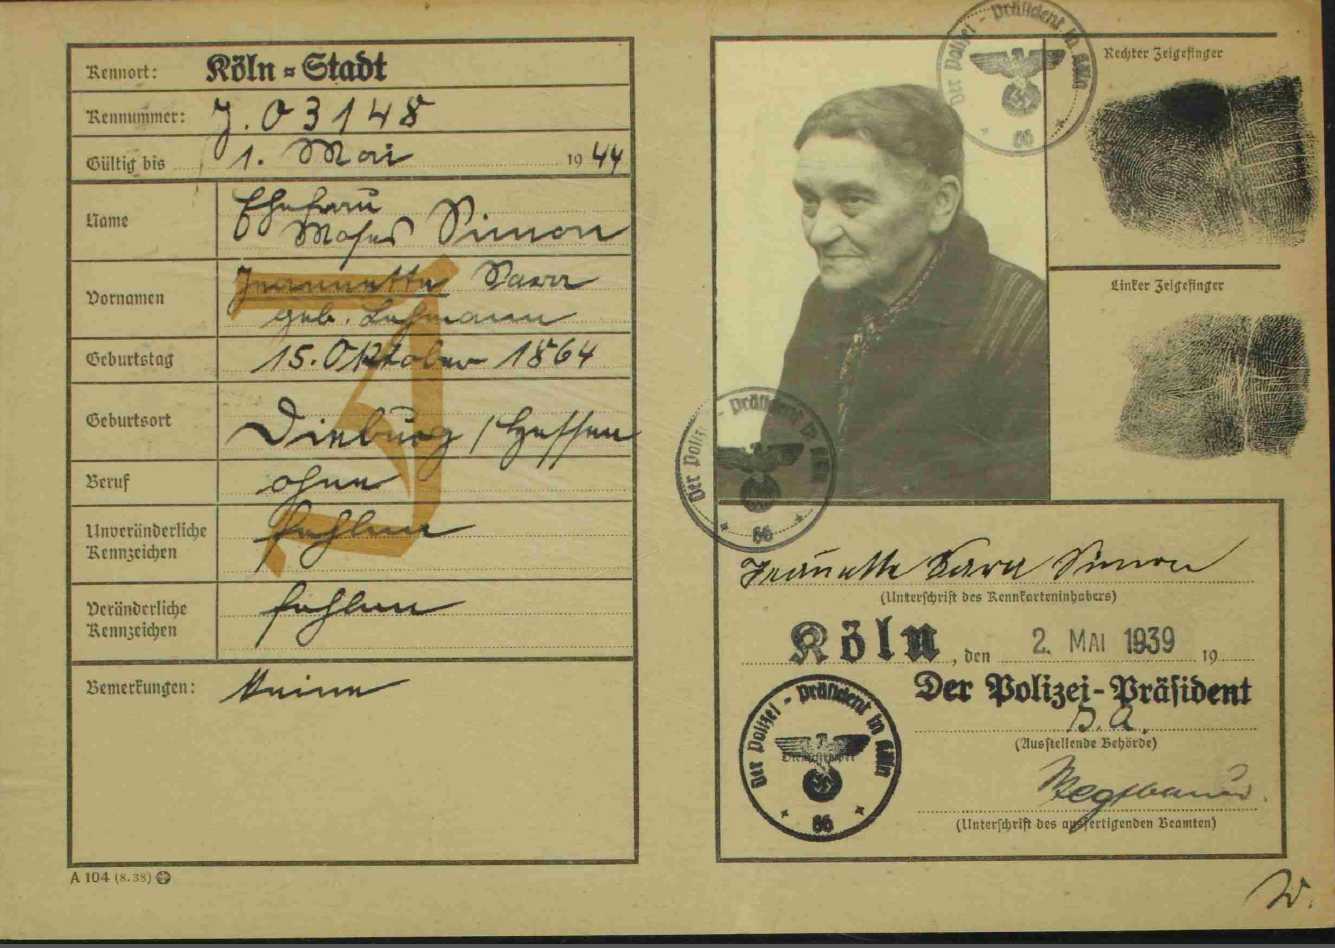 Kennort: Köln=Stadt
Kennummer: J. 03148
Gültig bis 1. Mai 1944
Name Ehefrau
Moses Simon
Vornamen Jeannette Sara
geb. Lehmann
Geburtstag 15. Oktober 1864
Geburtsort Dieburg / Hessen
Beruf ohne
Unveränderliche Kennzeichen fehlen
Veränderliche Kennzeichen fehlen
Bemerkungen: Keine
A 104 (8.38)
J
Der Polizei-Präsident in Köln
66
Rechter Zeigefinger
Linker Zeigefinger
Der Polizei-Präsident in Köln
66
Jeanette Sara Simon
(Unterschrift des Kennkarteninhabers)
Köln, den 2. MAI 1939 19
Der Polizei-Präsident
(Ausstellende Behörde)
(Unterschrift des ausfertigenden Beamten)
Der Polizei-Präsident in Köln
66